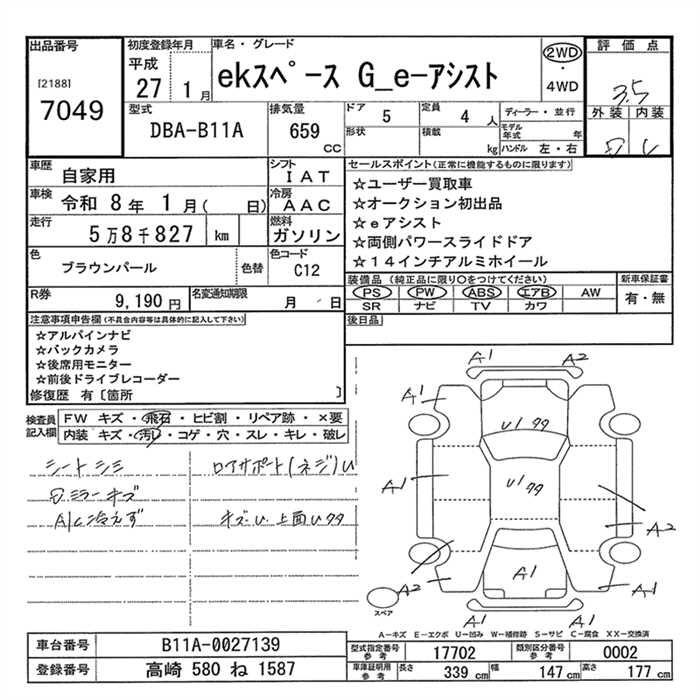 出品番号
[2188]
7049
初度登録年月
平成
27 1月
車名・グレード
ekスペース G_e-アシスト
2WD
・
4WD
評価点
3.5
外装 内装
型式
DBA-B11A
排気量
659 CC
ドア 5
形状
定員 4人
積載 kg
ディーラー・並行
モデル年式 年
ハンドル 左・右
車歴 自家用
シフト IAT
車検 令和 8年 1月( 日)
冷房 AAC
走行 5万8千827 km
燃料 ガソリン
色 ブラウンパール 色替
色コード C12
R券 9,190円
名変通知期限 月 日
セールスポイント(正常に機能するものに限ります)
☆ユーザー買取車
☆オークション初出品
☆eアシスト
☆両側パワースライドドア
☆14インチアルミホイール
装備品(純正品に限り○をつけてください)
PS PW ABS エアB AW
SR ナビ TV カワ
新車保証書
有・無
後日品
注意事項申告欄(不具合内容等は具体的に記入して下さい)
☆アルパインナビ
☆バックカメラ
☆後席用モニター
☆前後ドライブレコーダー
修復歴 有〔箇所 〕
検査員記入欄
FW キズ・飛石・ヒビ割・リペア跡・×要
内装 キズ・汚れ・コゲ・穴・スレ・キレ・破レ
シートシミ
ロアサポート(ネジ)U
ミラーキズ
A/C冷えず
キズ・U 上面Uタタ
A1 A2
A1 A1
U1タタ
U1タタ
A1
A2
A2 A1 A1
A1
スペア
A-キズ E-エクボ U-凹み W-補修跡 S-サビ C-腐食 XX-交換済
車台番号 B11A-0027139
登録番号 高崎 580 ね 1587
型式指定番号参考 17702
類別区分番号参考 0002
車庫証明用参考 長さ 339cm 幅 147cm 高さ 177cm